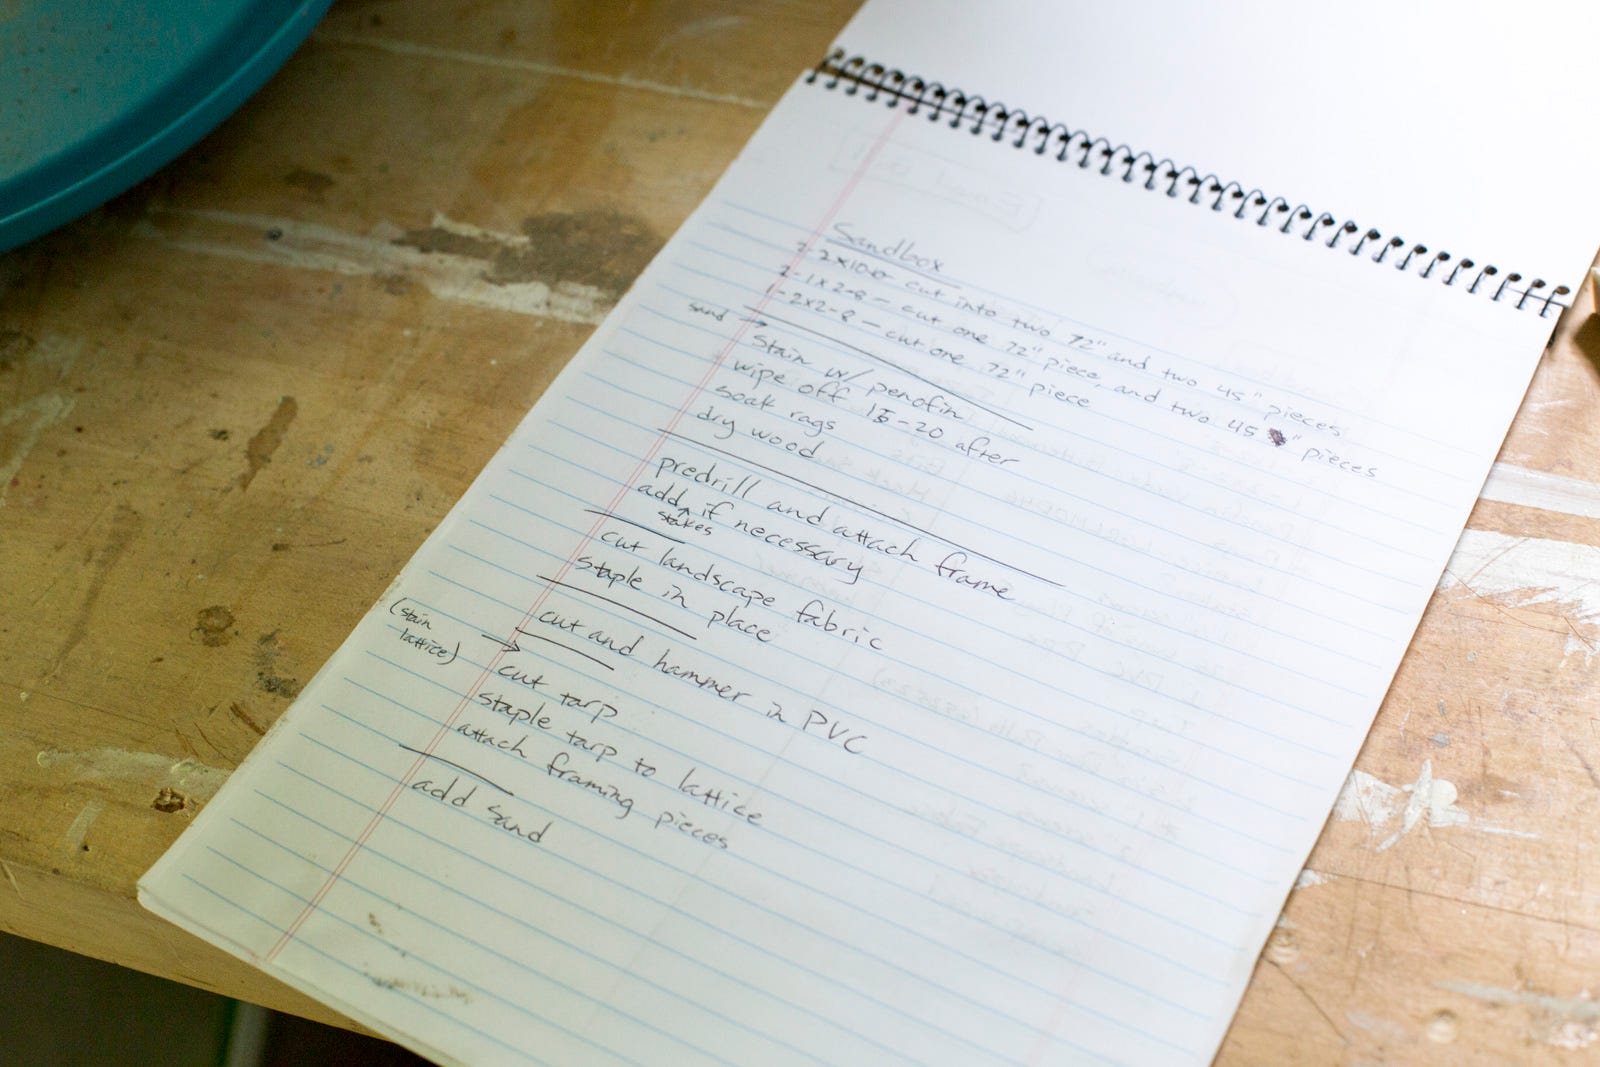 Sandbox
2-2x10-8- cut into two 72" and two 45" pieces
2-1x2-8- cut one 72" piece, and two 45" pieces
1-2x2-8- cut one 72" piece
sand →
stain w/ penofin
wipe off 15-20 after
soak rags
dry wood
predrill and attach frame
add stakes if necessary
cut landscape fabric
staple in place
cut and hammer in PVC
(stain
lattice)
cut tarp
staple tarp to lattice
attach framing pieces
add sand